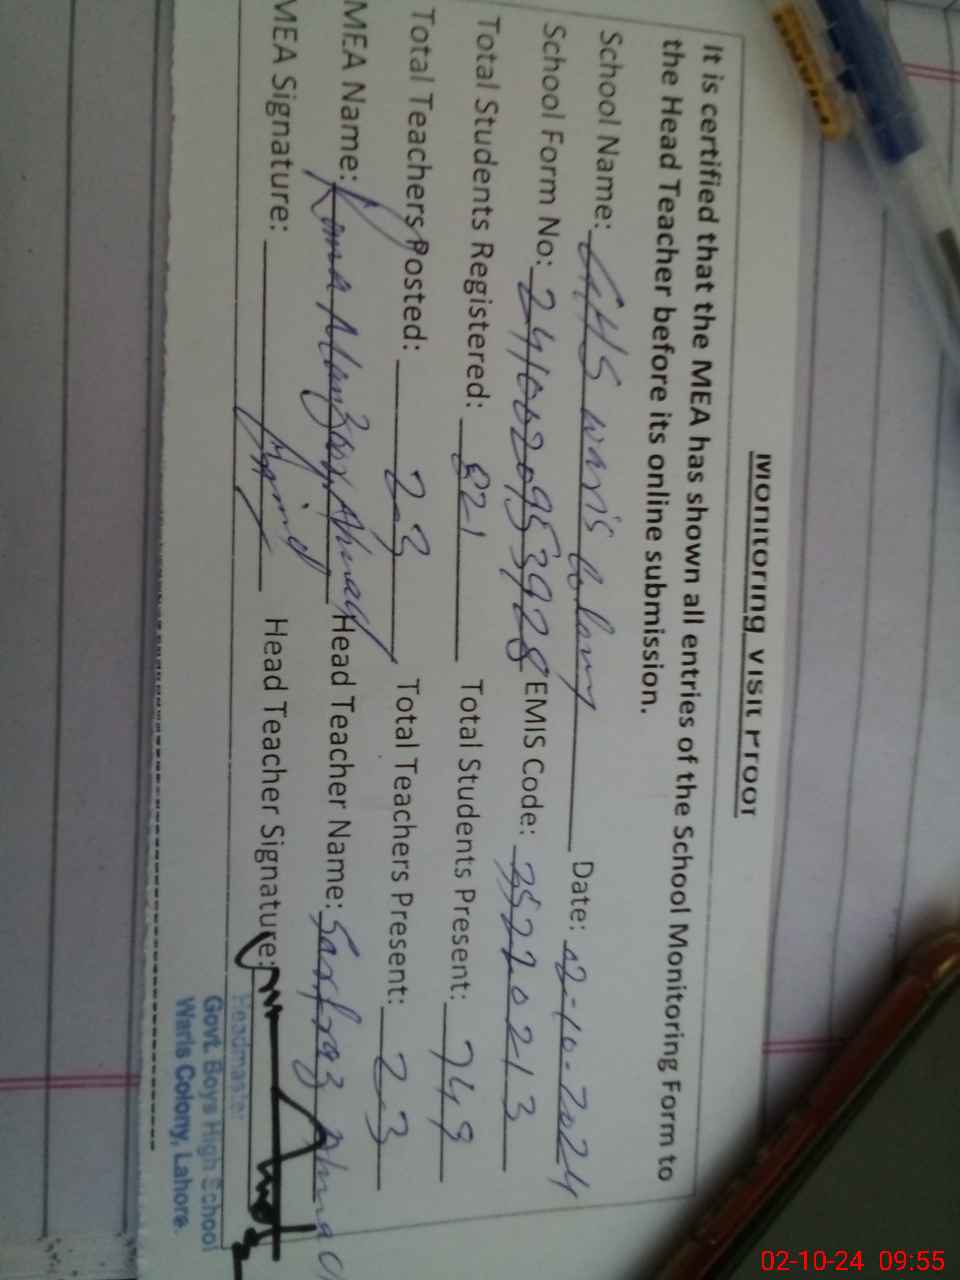 Monitoring Visit Proof
It is certified that the MEA has shown all entries of the School Monitoring Form to
the Head Teacher before its online submission.
School Name: GHS waris Colony Date: 02-10-2024
School Form No: 2410020953928 EMIS Code: 35220213
Total Students Registered: 821 Total Students Present: 749
Total Teachers Posted: 23 Total Teachers Present: 23
MEA Name: Rana Ahmad Head Teacher Name: Sarfraz Ahmad
MEA Signature: Head Teacher Signature:
Headmaster
Govt. Boys High School
Waris Colony, Lahore.
02-10-24 09:55